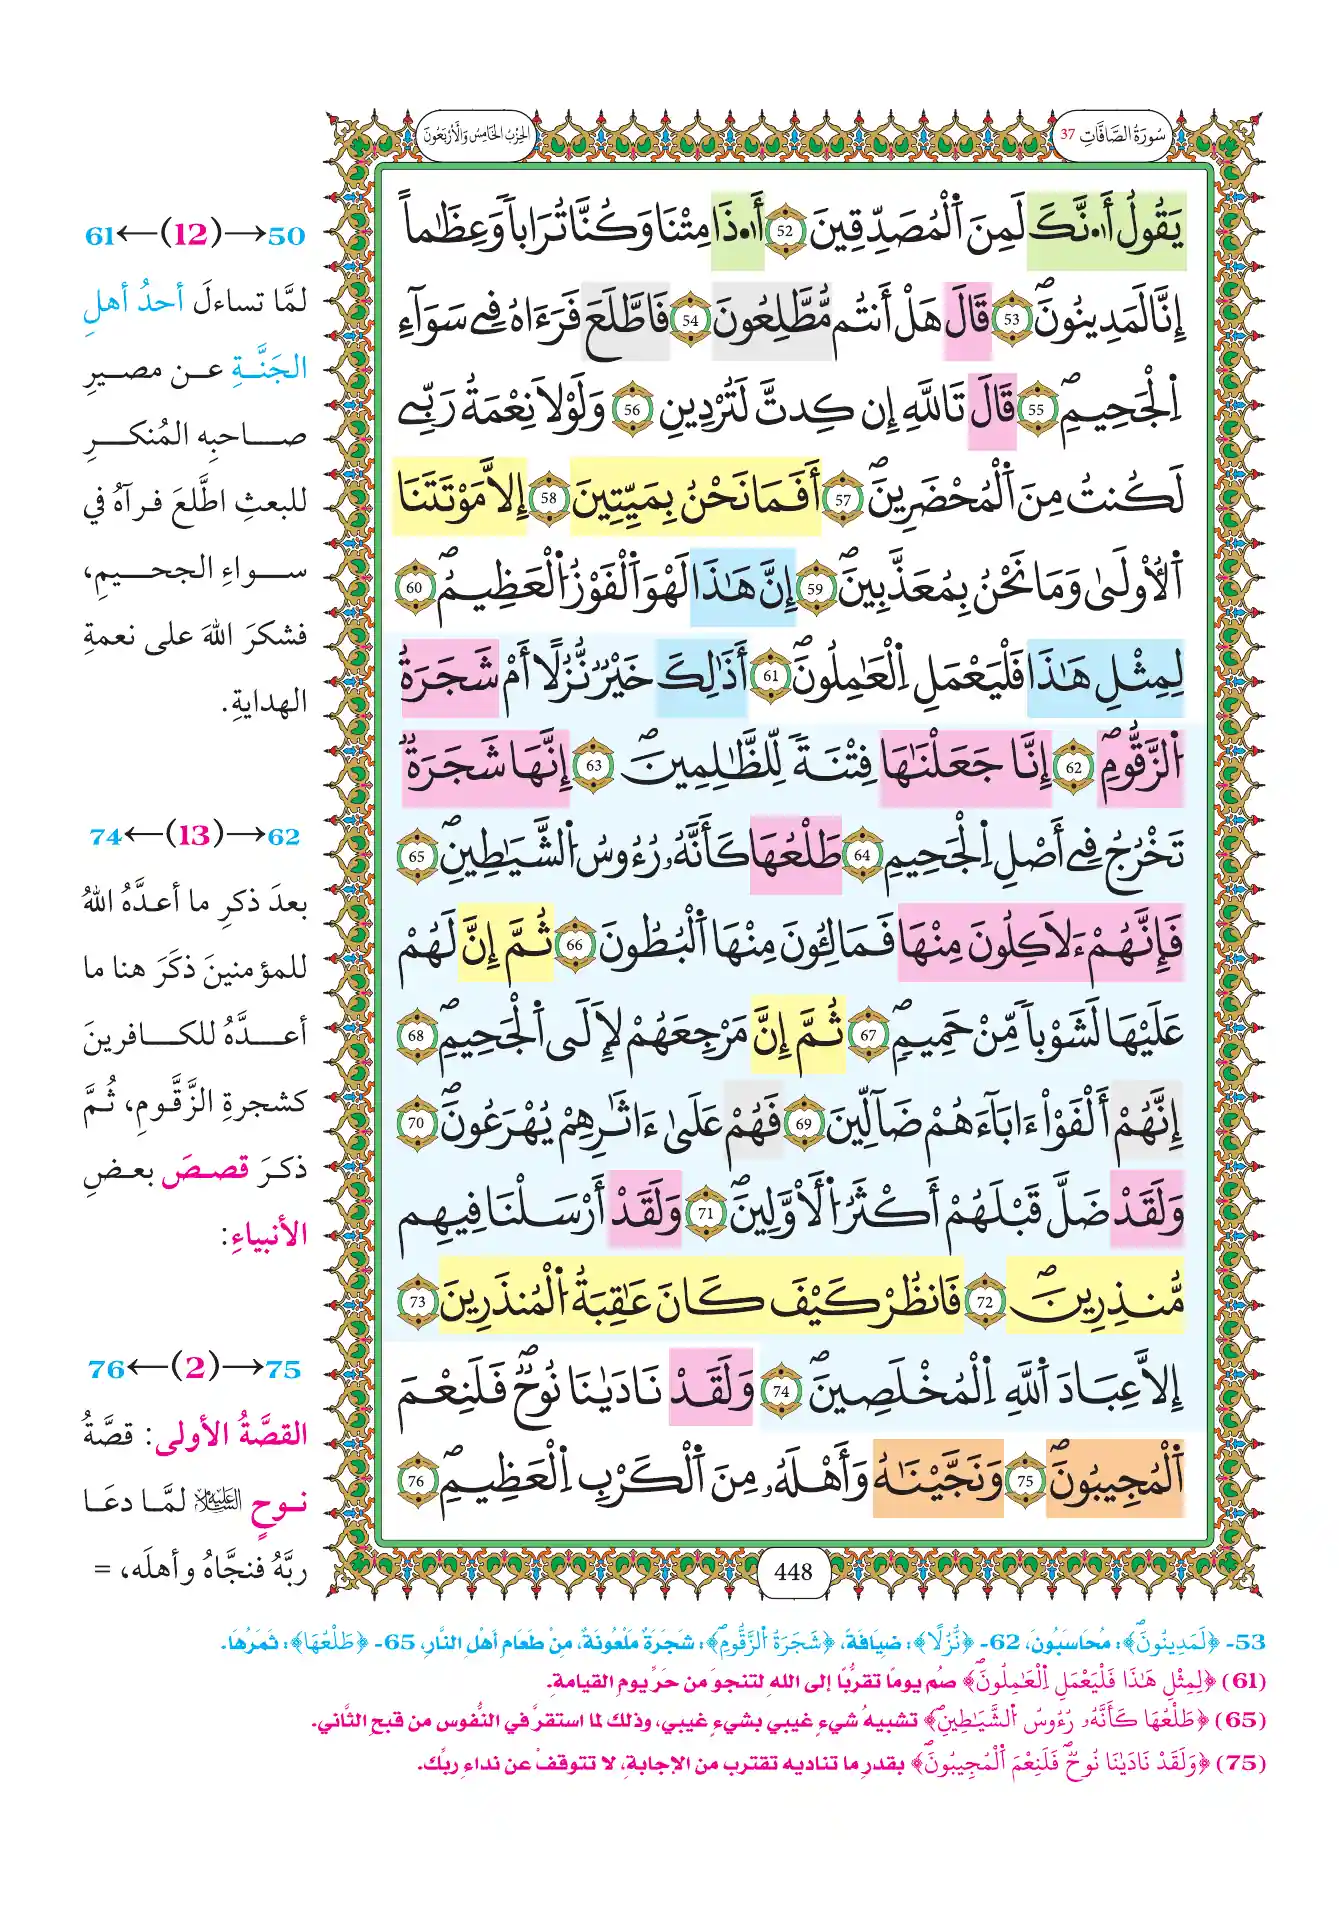 سُورَةُ الصَّافَّاتِ 37
الحِزْبُ الخَامِسُ وَالْأَرْبَعُونَ
يَقُولُ أَ.نَّكَ لَمِنَ اَ۬لْمُصَدِّقِينَ 52 أَ.ذَا مِتْنَا وَكُنَّا تُرَاباٗ وَعِظَٰماً
اِنَّا لَمَدِينُونَۖ 53 قَالَ هَلْ أَنتُم مُّطَّلِعُونَ 54 فَاطَّلَعَ فَرَءَاهُ فِے سَوَآءِ
اِ۬لْجَحِيمِۖ 55 قَالَ تَاللَّهِ إِن كِدتَّ لَتُرْدِينِ 56 وَلَوْلَا نِعْمَةُ رَبِّے
لَكُنتُ مِنَ اَ۬لْمُحْضَرِينَۖ 57 أَفَمَا نَحْنُ بِمَيِّتِينَ 58 إِلَّا مَوْتَتَنَا
اَ۬لُاولَىٰ وَمَا نَحْنُ بِمُعَذَّبِينَۖ 59 إِنَّ هَٰذَا لَهْوَ اَ۬لْفَوْزُ اُ۬لْعَظِيمُۖ 60
لِمِثْلِ هَٰذَا فَلْيَعْمَلِ اِ۬لْعَٰمِلُونَۖ 61 أَذَٰلِكَ خَيْرٞ نُّزُلًا أَمْ شَجَرَةُ
اُ۬لزَّقُّومِۖ 62 إِنَّا جَعَلْنَٰهَا فِتْنَةٗ لِّلظَّٰلِمِينَۖ 63 إِنَّهَا شَجَرَةٞ
تَخْرُجُ فِے أَصْلِ اِ۬لْجَحِيمِ 64 طَلْعُهَا كَأَنَّهُۥ رُءُوسُ اُ۬لشَّيَٰطِينِۖ 65
فَإِنَّهُمْ ءَلَاكِلُونَ مِنْهَا فَمَالِـُٔونَ مِنْهَا اَ۬لْبُطُونَ 66 ثُمَّ إِنَّ لَهُمْ
عَلَيْهَا لَشَوْباٗ مِّنْ حَمِيمٖۖ 67 ثُمَّ إِنَّ مَرْجِعَهُمْ لَإِلَى اَ۬لْجَحِيمِۖ 68
إِنَّهُمْ أَلْفَوْاْ ءَابَآءَهُمْ ضَآلِّينَ 69 فَهُمْ عَلَىٰ ءَاثَٰرِهِمْ يُهْرَعُونَۖ 70
وَلَقَدْ ضَلَّ قَبْلَهُمْ أَكْثَرُ اُ۬لْأَوَّلِينَۖ 71 وَلَقَدْ أَرْسَلْنَا فِيهِم
مُّنذِرِينَۖ 72 فَانظُرْ كَيْفَ كَانَ عَٰقِبَةُ اُ۬لْمُنذَرِينَ 73
إِلَّا عِبَادَ اَ۬للَّهِ اِ۬لْمُخْلَصِينَۖ 74 وَلَقَدْ نَادَىٰنَا نُوحٞ فَلَنِعْمَ
اَ۬لْمُجِيبُونَۖ 75 وَنَجَّيْنَٰهُ وَأَهْلَهُۥ مِنَ اَ۬لْكَرْبِ اِ۬لْعَظِيمِۖ 76
448
50→(12)←61
لمَّا تساءلَ أحدُ أهلِ
الجَنَّةِ عن مصيرِ
صاحبِه المُنكرِ
للبعثِ اطَّلعَ فرآهُ في
سواءِ الجحيمِ،
فشكرَ اللهَ على نعمةِ
الهدايةِ.
62→(13)←74
بعدَ ذكرِ ما أعدَّهُ اللهُ
للمؤمنينَ ذكَرَ هنا ما
أعدَّهُ للكافرينَ
كشجرةِ الزَّقُّومِ، ثُمَّ
ذكرَ قصصَ بعضِ
الأنبياءِ:
75→(2)←76
القصَّةُ الأولى: قصَّةُ
نوحٍ عليه السلام لمَّا دعَا
ربَّهُ فنجَّاهُ وأهلَه، =
53- ﴿لَمَدِينُونَۖ﴾: مُحَاسَبُونَ، 62- ﴿نُّزُلًا﴾: ضِيَافَةً، ﴿شَجَرَةُ اُ۬لزَّقُّومِۖ﴾: شَجَرَةٌ مَلْعُونَةٌ، مِنْ طَعَامِ أَهْلِ النَّارِ، 65- ﴿طَلْعُهَا﴾: ثَمَرُهَا.
(61) ﴿لِمِثْلِ هَٰذَا فَلْيَعْمَلِ اِ۬لْعَٰمِلُونَۖ﴾ صُم يومًا تقرُّبًا إلى اللهِ لتنجوَ من حَرِّ يومِ القيامةِ.
(65) ﴿طَلْعُهَا كَأَنَّهُۥ رُءُوسُ اُ۬لشَّيَٰطِينِۖ﴾ تشبيهُ شيءٍ غيبي بشيءٍ غيبي، وذلك لما استقرَّ في النُّفوس من قبحِ الثَّاني.
(75) ﴿وَلَقَدْ نَادَىٰنَا نُوحٞ فَلَنِعْمَ اَ۬لْمُجِيبُونَۖ﴾ بقدرِ ما تناديه تقترب من الإجابةِ، لا تتوقفْ عن نداءِ ربِّك.